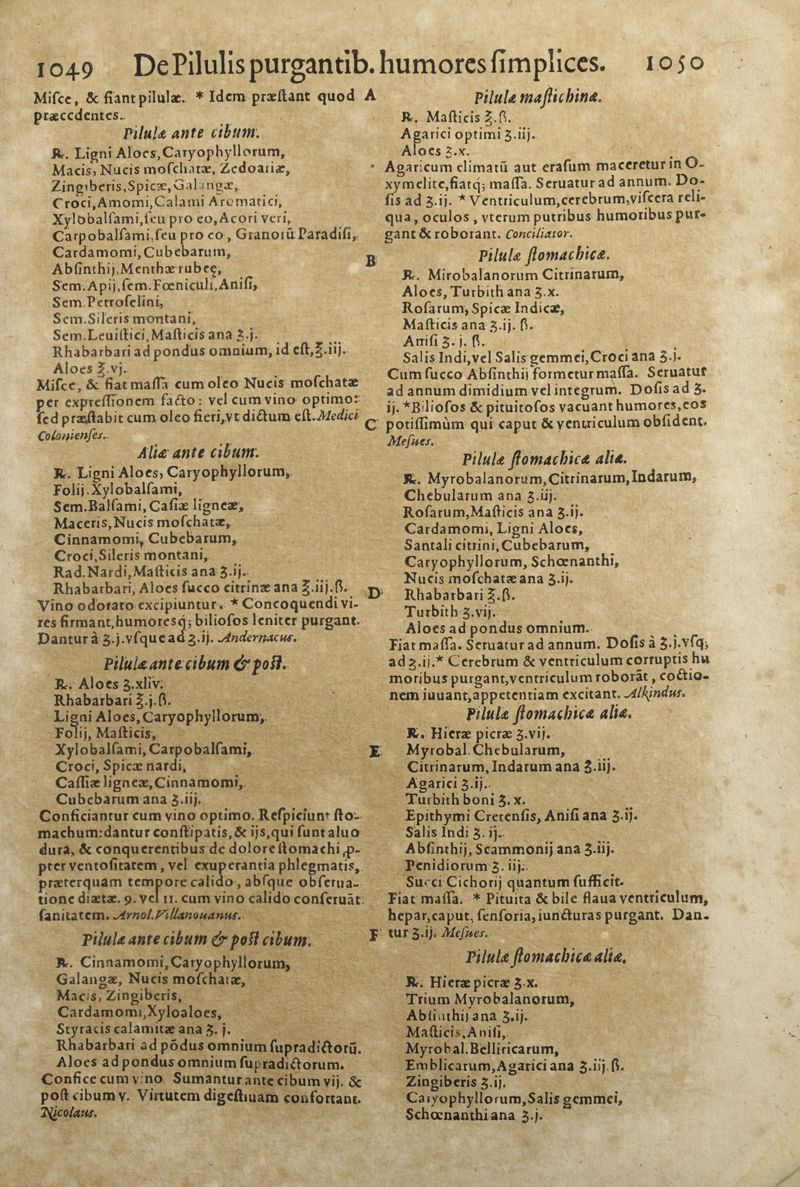 1049 De Pilulis purgantib. humores ſimplices. 1050
Miſce, & fiant pilulæ. * Idem præſtant quod
præcedentes.
Pilulæ ante cibum.
℞. Ligni Aloes, Caryophyllorum,
Macis, Nucis moſchatæ, Zedoariæ,
Zingiberis, Spicæ, Galangæ,
Croci, Amomi, Calami Aromatici,
Xylobalſami, ſeu pro eo, Acori veri,
Carpobalſami, ſeu pro eo, Granorū Paradiſi,
Cardamomi, Cubebarum,
Abſinthij, Menthæ rubeę,
Sem. Apij, ſem. Fœniculi, Aniſi,
Sem. Petroſelini,
Sem. Sileris montani,
Sem. Leuiſtici, Maſticis ana ʒ.j.
Rhabarbari ad pondus omnium, id eſt, ℥.iij.
Aloes ℥.vj.
Miſce, & fiat maſſa cum oleo Nucis moſchatæ
per expreſſionem facto: vel cum vino optimo:
ſed præſtabit cum oleo fieri, vt dictum eſt. Medici
Colonienſes.
Aliæ ante cibum.
℞. Ligni Aloes, Caryophyllorum,
Folij. Xylobalſami,
Sem. Balſami, Caſiæ ligneæ,
Maceris, Nucis moſchatæ,
Cinnamomi, Cubebarum,
Croci, Sileris montani,
Rad. Nardi, Maſticis ana ʒ.ij.
Rhabarbari, Aloes ſucco citrinæ ana ℥.iij.ß.
Vino odorato excipiuntur. * Concoquendi vi-
res firmant, humoresq; bilioſos leniter purgant.
Dantur à ʒ.j. vſque ad ʒ.ij. Andernacus.
Pilulæ ante cibum & poſt.
℞. Aloes ʒ.xliv.
Rhabarbari ℥.j.ß.
Ligni Aloes, Caryophyllorum,
Folij, Maſticis,
Xylobalſami, Carpobalſami,
Croci, Spicæ nardi,
Caſſiæ ligneæ, Cinnamomi,
Cubebarum ana ʒ.iij.
Conficiantur cum vino optimo. Reſpiciunt ſto-
machum: dantur conſtipatis, & ijs, qui ſunt aluo
dura, & conquerentibus de dolore ſtomachi ꝓ-
pter ventoſitatem, vel exuperantia phlegmatis,
præterquam tempore calido, abſque obſerua-
tione diætæ. 9. vel 11. cum vino calido conſeruāt
ſanitatem. Arnol. Villanouanus.
Pilulæ ante cibum & poſt cibum.
℞. Cinnamomi, Caryophyllorum,
Galangæ, Nucis moſchatæ,
Macis, Zingiberis,
Cardamomi, Xyloaloes,
Styracis calamitæ ana ʒ. j.
Rhabarbari ad pōdus omnium ſupradictorū.
Aloes ad pondus omnium ſupradictorum.
Confice cum vino. Sumantur ante cibum vij. &
poſt cibum v. Virtutem digeſtiuam confortant.
Nicolaus.
A
B
C
D
E
F
Pilulæ maſtichinæ.
℞. Maſticis ℥.ß.
Agarici optimi ʒ.iij.
Aloes ʒ.x.
Agaricum elimatū aut eraſum maceretur in O-
xymelite, fiatq; maſſa. Seruatur ad annum. Do-
ſis ad ʒ.ij. * Ventriculum, cerebrum, viſcera reli-
qua, oculos, vterum putribus humoribus pur-
gant & roborant. Conciliator.
Pilulæ ſtomachicæ.
℞. Mirobalanorum Citrinarum,
Aloes, Turbith ana ʒ.x.
Roſarum, Spicæ Indicæ,
Maſticis ana ʒ.ij. ß.
Aniſi ʒ. j. ß.
Salis Indi, vel Salis gemmei, Croci ana ʒ.j.
Cum ſucco Abſinthij formetur maſſa. Seruatur
ad annum dimidium vel integrum. Doſis ad ʒ.
ij. *Bilioſos & pituitoſos vacuant humores, eos
potiſſimùm qui caput & ventriculum obſident.
Meſues.
Pilulæ ſtomachicæ aliæ.
℞. Myrobalanorum, Citrinarum, Indarum,
Chebularum ana ʒ.iij.
Roſarum, Maſticis ana ʒ.ij.
Cardamomi, Ligni Aloes,
Santali citrini, Cubebarum,
Caryophyllorum, Schœnanthi,
Nucis moſchatæ ana ʒ.ij.
Rhabarbari ℥.ß.
Turbith ʒ.vij.
Aloes ad pondus omnium.
Fiat maſſa. Seruatur ad annum. Doſis à ʒ.j. vſq;
ad ʒ.ij.* Cerebrum & ventriculum corruptis hu
moribus purgant, ventriculum roborāt, coctio-
nem iuuant, appetentiam excitant. Alkindus.
Pilulæ ſtomachicæ aliæ.
℞. Hieræ picræ ʒ.vij.
Myrobal. Chebularum,
Citrinarum, Indarum ana ℥.iij.
Agarici ʒ.ij.
Turbith boni ʒ. x.
Epithymi Cretenſis, Aniſi ana ʒ.ij.
Salis Indi ʒ. ij.
Abſinthij, Scammonij ana ʒ.iij.
Penidiorum ʒ. iij.
Succi Cichorij quantum ſufficit.
Fiat maſſa. * Pituita & bile flaua ventriculum,
hepar, caput, ſenſoria, iuncturas purgant. Dan-
tur ʒ.ij. Meſues.
Pilulæ ſtomachicæ aliæ.
℞. Hieræ picræ ʒ x.
Trium Myrobalanorum,
Abſinthij ana ʒ.ij.
Maſticis, Aniſi,
Myrobal. Belliricarum,
Emblicarum, Agarici ana ʒ.iij.ß.
Zingiberis ʒ.ij.
Caryophyllorum, Salis gemmei,
Schœnanthi ana ʒ.j.